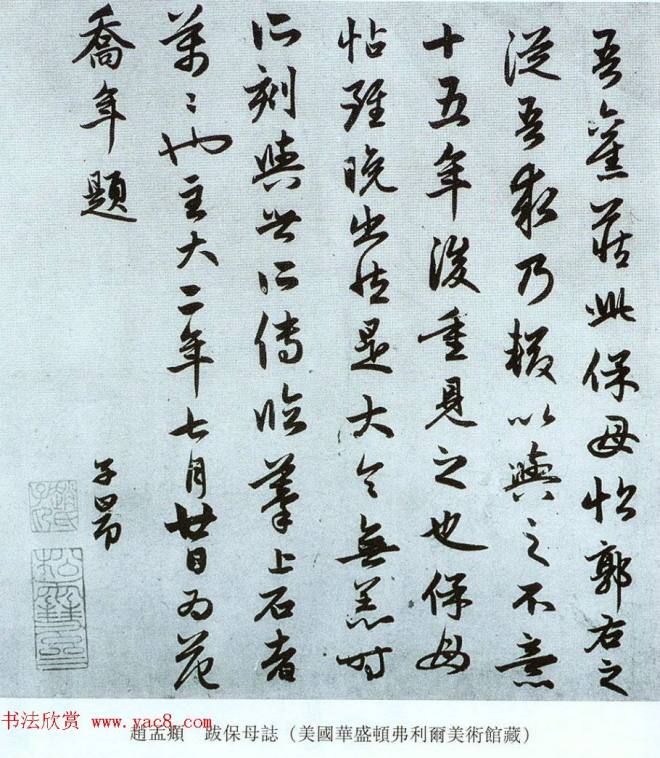 吾舊藏此保母帖郭右之
從吾求乃輟以與之不意
十五年後重見之也保母
帖雖晚出然是大令無恙時
所刻與世所傳臨摹上石者
萬〻也至大二年七月廿日為范
喬年題
子昂
趙氏子昂
松雪齋
书法欣赏 www.yac8.com
趙孟頫 跋保母誌(美國華盛頓弗利爾美術館藏)